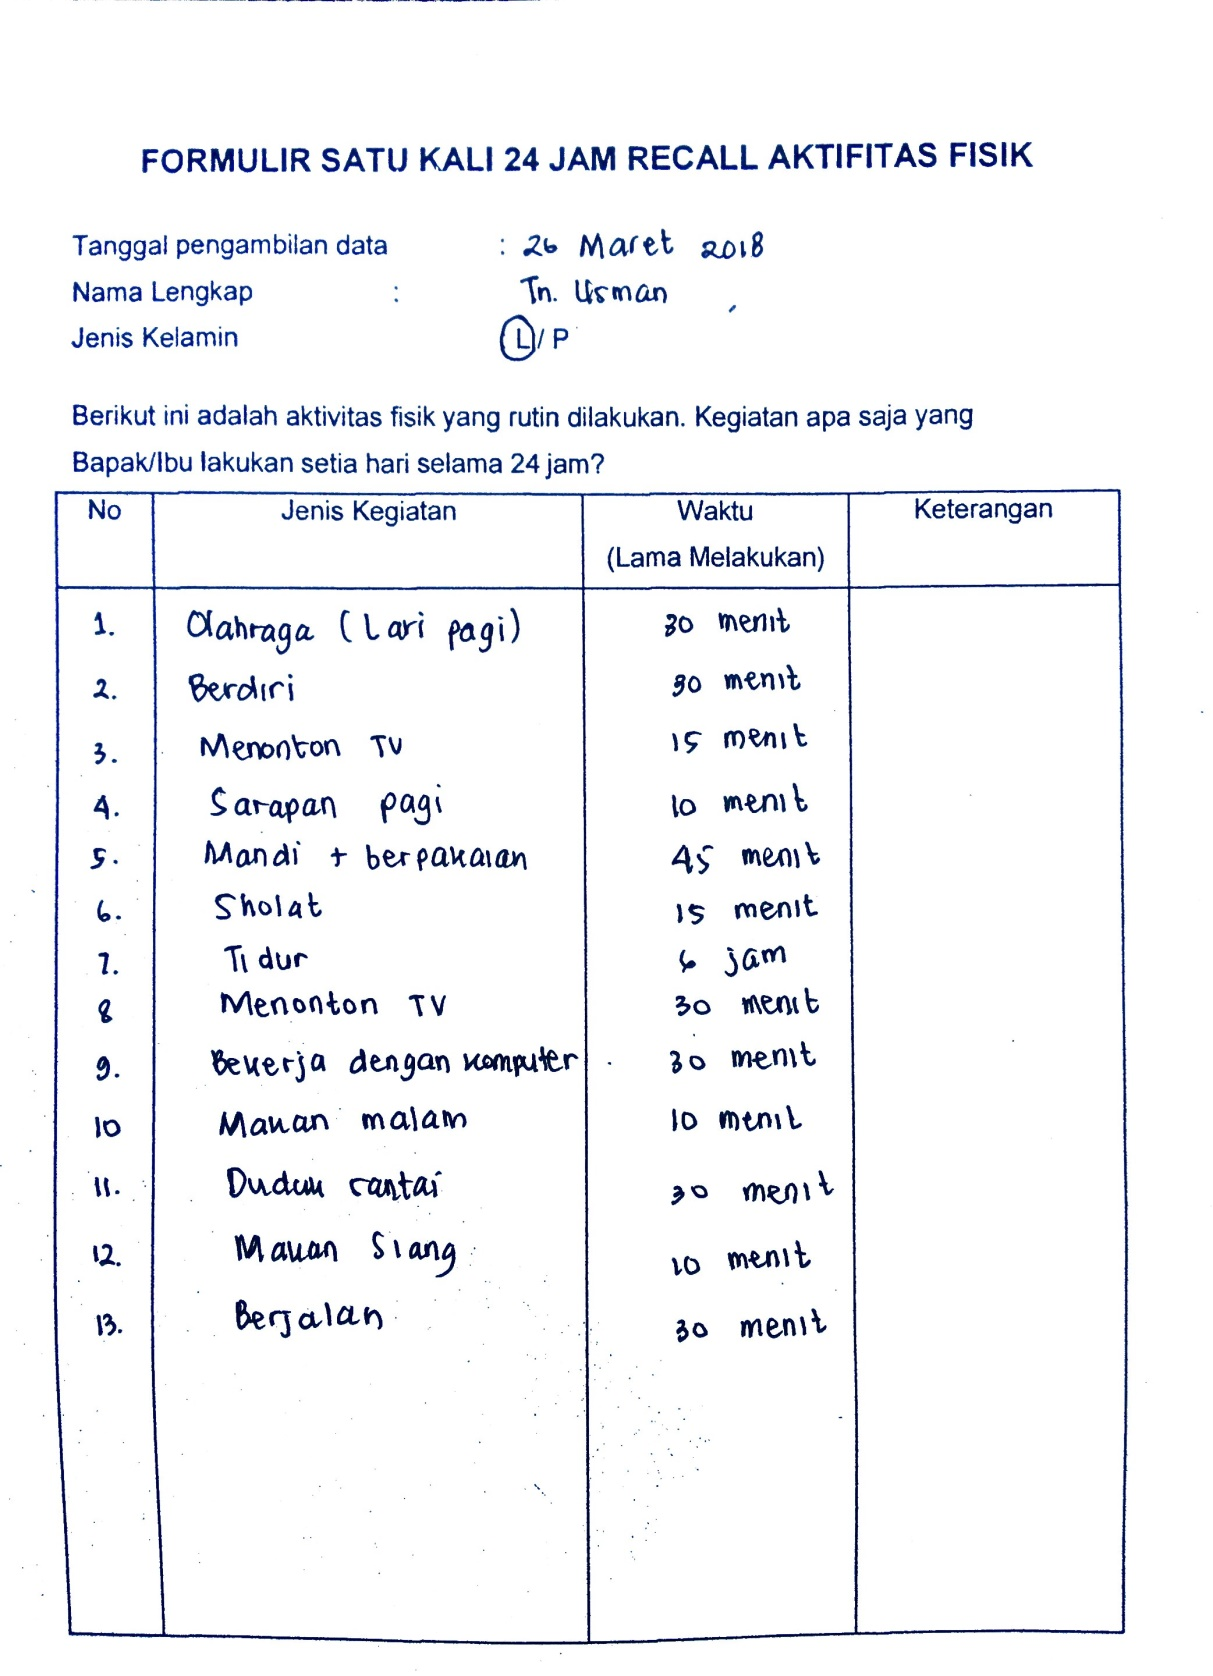 FORMULIR SATU KALI 24 JAM RECALL AKTIFITAS FISIK
Tanggal pengambilan data : 26 Maret 2018
Nama Lengkap : Tn. Usman
Jenis Kelamin L/ P
Berikut ini adalah aktivitas fisik yang rutin dilakukan. Kegiatan apa saja yang
Bapak/Ibu lakukan setia hari selama 24 jam?
No Jenis Kegiatan Waktu (Lama Melakukan) Keterangan
1. Olahraga (Lari pagi) 30 menit
2. Berdiri 30 menit
3. Menonton TV 15 menit
4. Sarapan pagi 10 menit
5. Mandi + berpakaian 45 menit
6. Sholat 15 menit
7. Tidur 6 jam
8 Menonton TV 30 menit
9. Bekerja dengan komputer 30 menit
10 Makan malam 10 menit
11. Duduk cantai 30 menit
12. Makan Siang 10 menit
13. Berjalan 30 menit